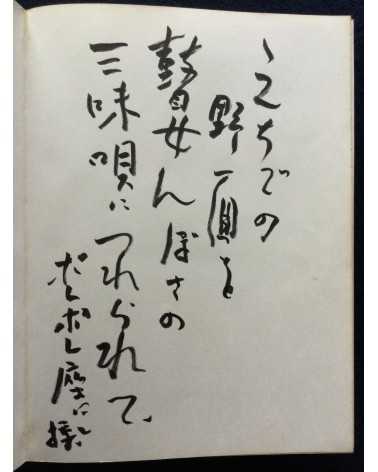 こちでの
野一面を
瞽女んぼさの
三味唄に
つれられて、
ポレポレ座に
捧ぐ